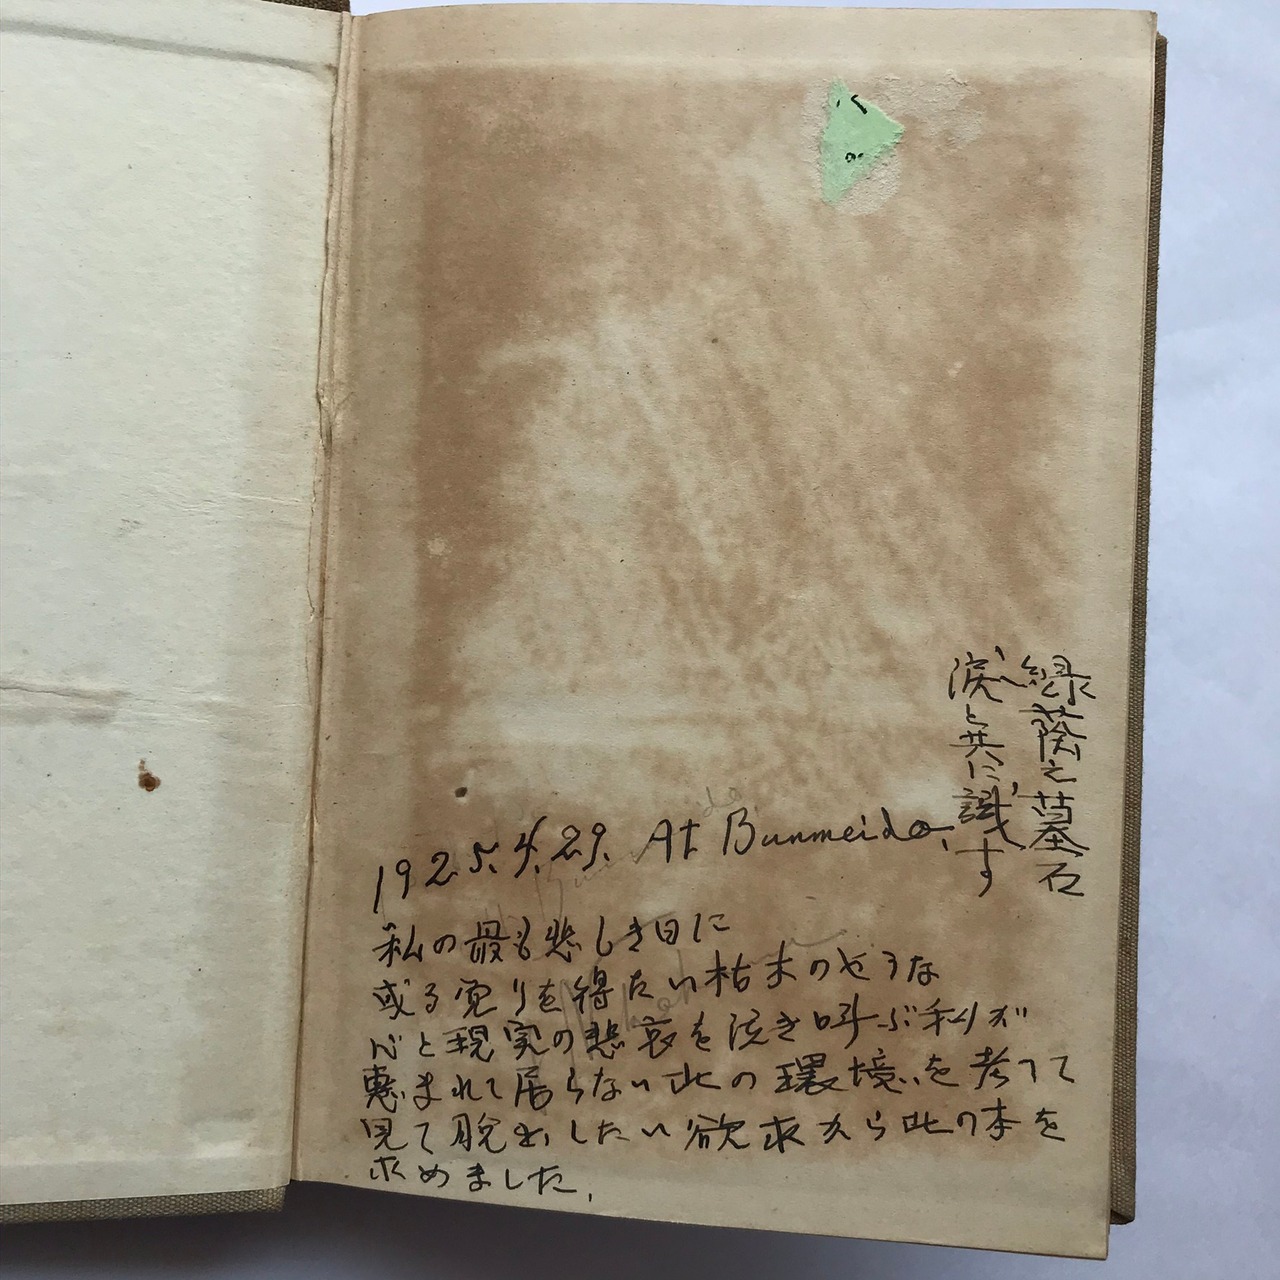 緑蔭之墓石
涙と共に識す
1925.4.29. At Bunmeido.
私の最も悲しき日に
或る覚りを得たい枯木のやうな
心と現実の悲哀を泣き叫ぶ私が
恵まれて居らない此の環境を考へて
見て脱出したい欲求から此の本を
求めました.